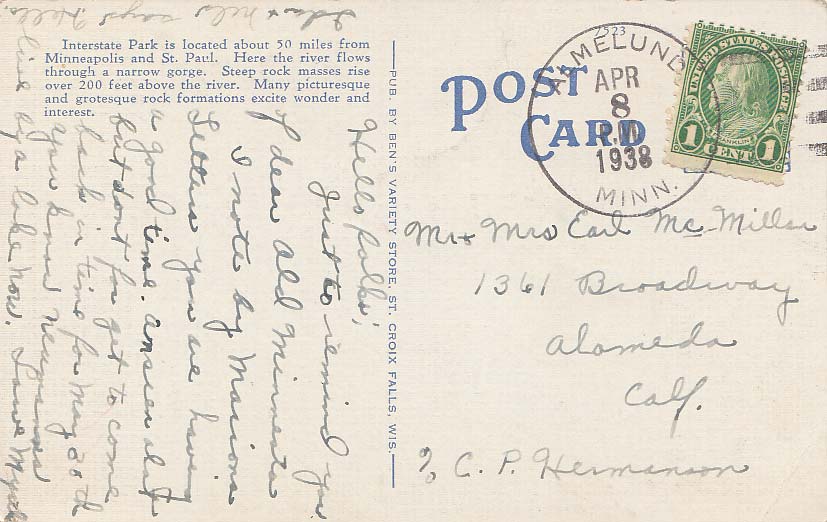 Interstate Park is located about 50 miles from
Minneapolis and St. Paul. Here the river flows
through a narrow gorge. Steep rock masses rise
over 200 feet above the river. Many picturesque
and grotesque rock formations excite wonder and
interest.
Hello folks;
Just to remind you
of dear old Minnesota
I note by Marions
Letters you are having
a good time. 
but dont for get to come
back in time for May 20th
You know
live by a lake now. Love
says Hello
PUB. BY BEN'S VARIETY STORE, ST. CROIX FALLS, WIS.
POST
CARD
ALMELUND
APR
8
P.M.
1938
MINN.
UNITED STATES POSTAGE
FRANKLIN
1 CENT 1
Mr + Mrs Earl Mc Millan
1361 Broadway
Alameda
Calf.
% C. P. Hermanson